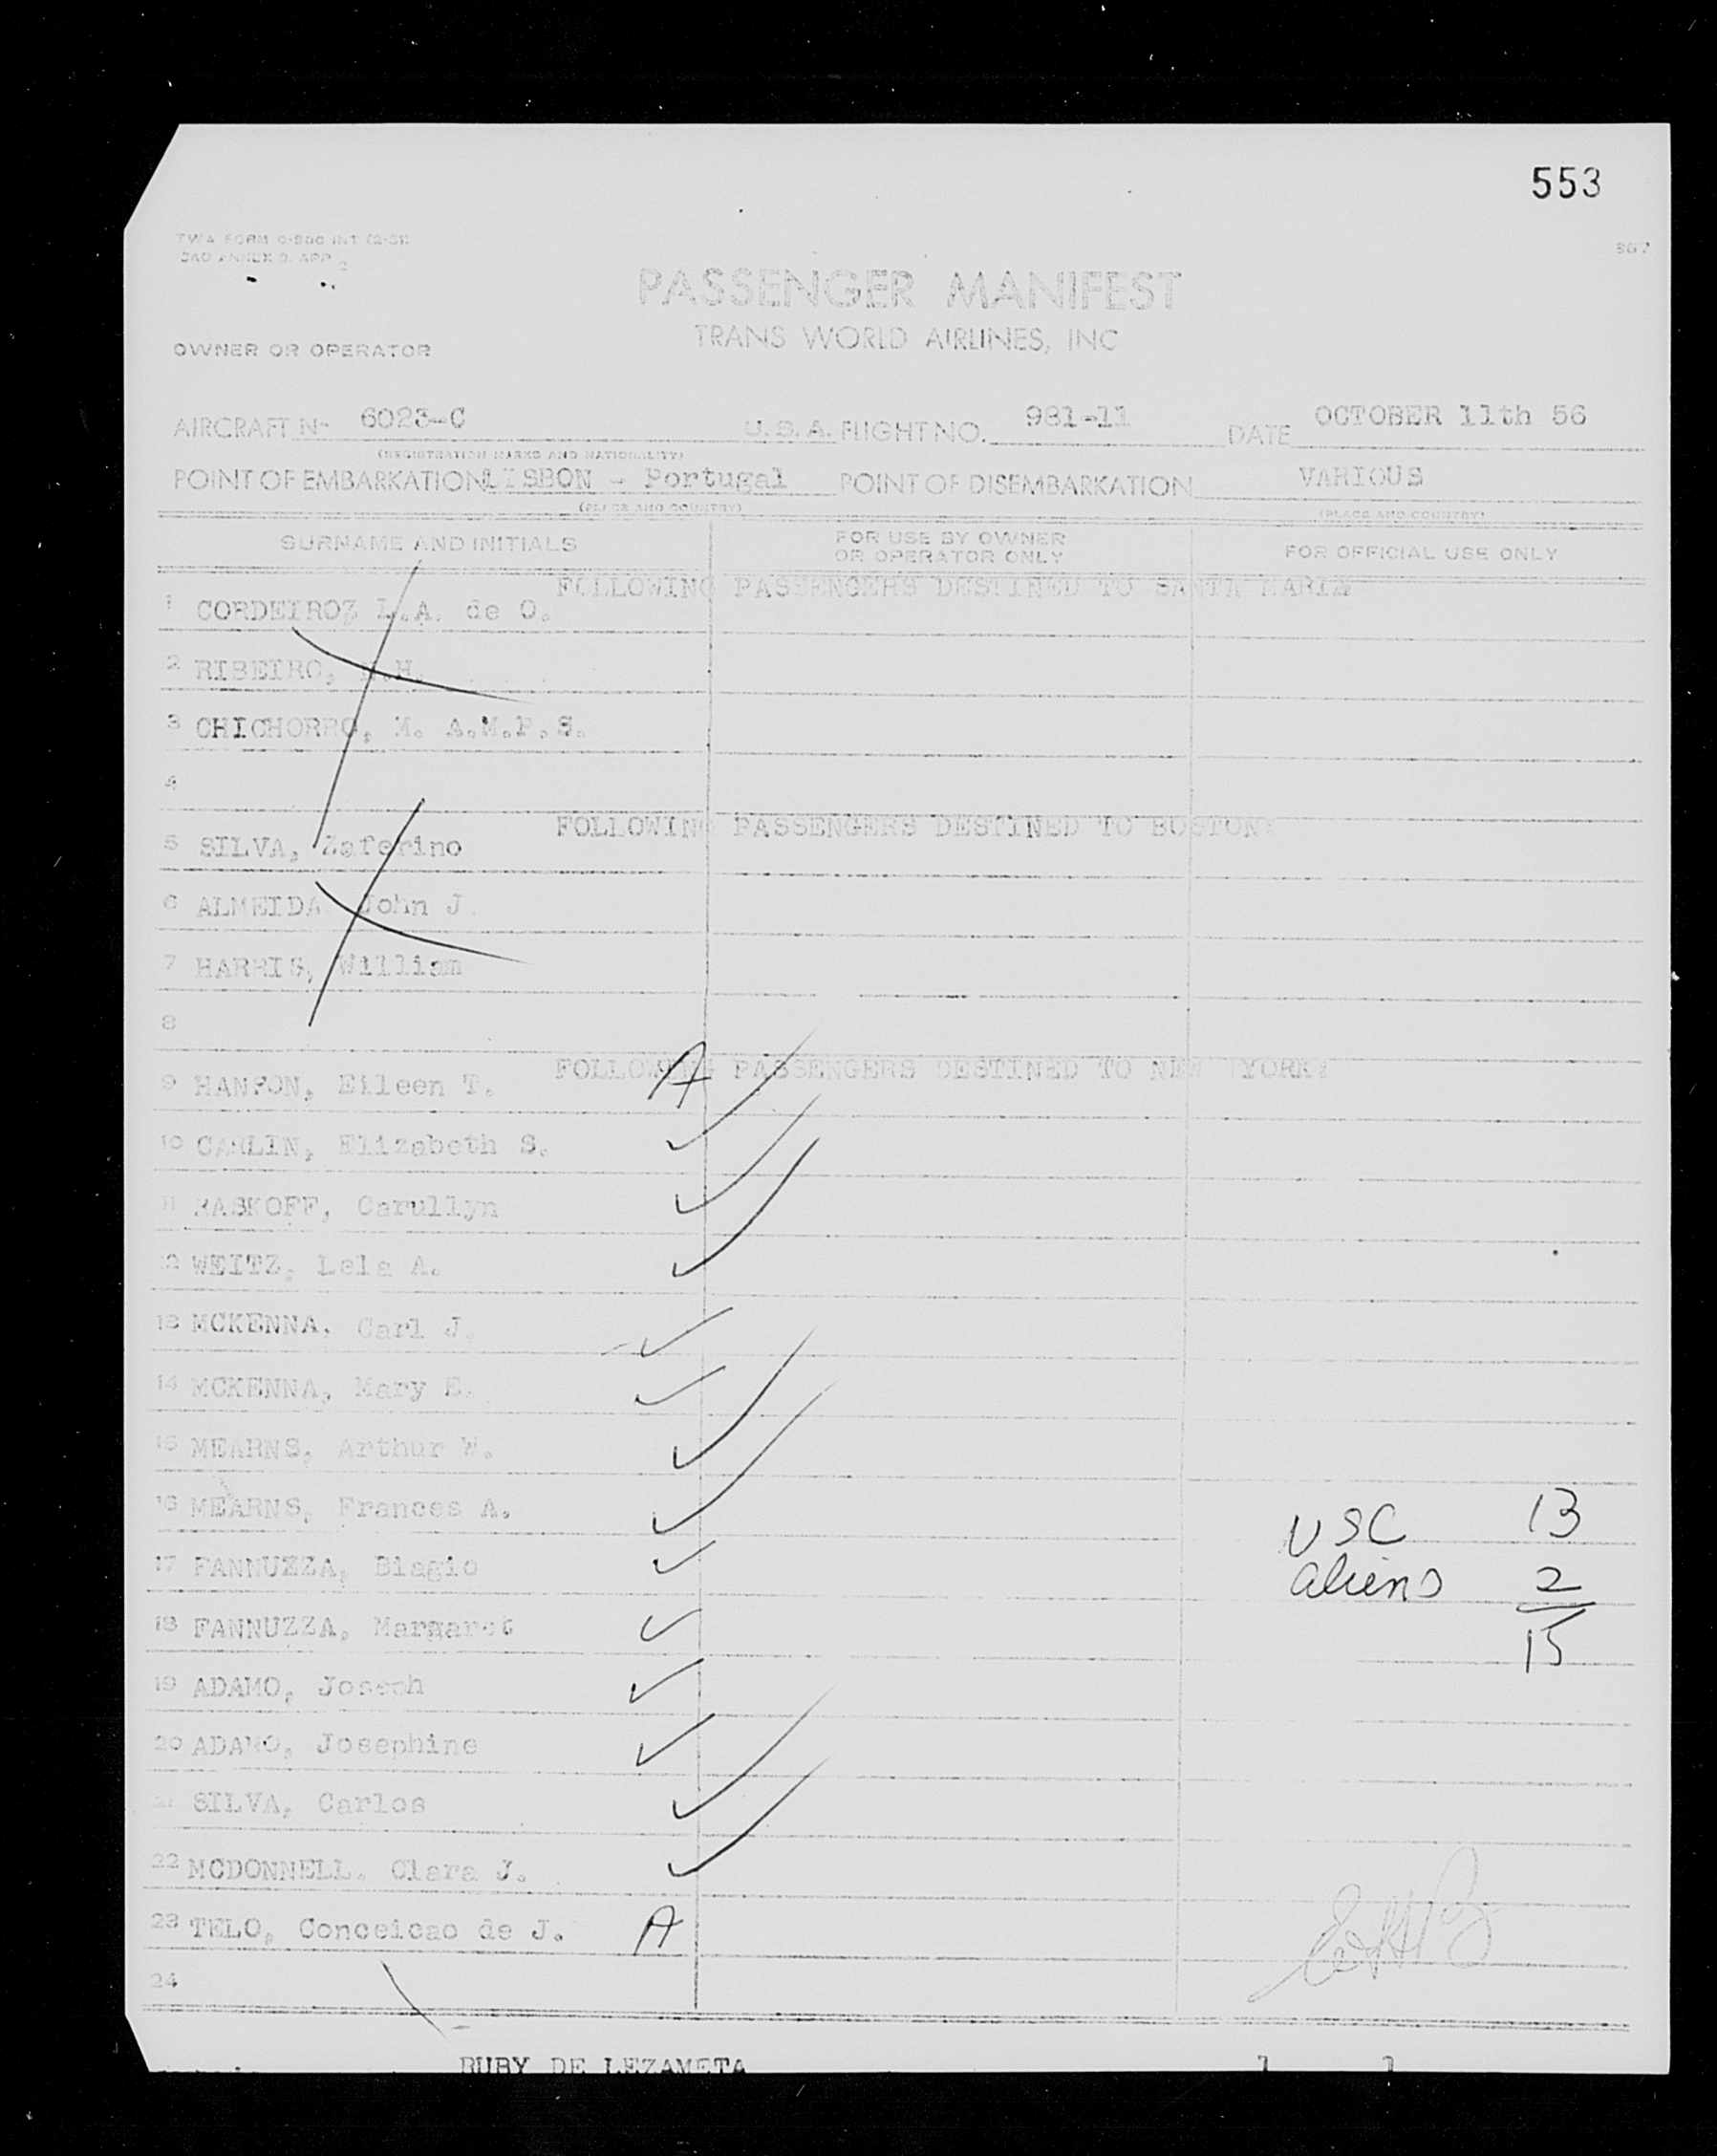 553
TWA FORM
567
PASSENGER MANIFEST
TRANS WORLD AIRLINES, INC
OWNER OR OPERATOR
AIRCRAFT No 6023-C U.S.A. FLIGHT NO. 981-11 DATE OCTOBER 11th 56
(REGISTRATION MARKS AND NATIONALITY)
POINT OF EMBARKATION LISBON - Portugal POINT OF DISEMBARKATION VARIOUS
(PLACE AND COUNTRY) (PLACE AND COUNTRY)
SURNAME AND INITIALS FOR USE BY OWNER OR OPERATOR ONLY FOR OFFICIAL USE ONLY
FOLLOWING PASSENGERS DESTINED TO SANTA MARIA
1 CORDEIROZ L.A. de O.
2 RIBEIRO, M.H.
3 CHICHORRO, M. A.M.P.S.
4
FOLLOWING PASSENGERS DESTINED TO BOSTON:
5 SILVA, Zeferino
6 ALMEIDA John J.
7 HARRIS, William
8
FOLLOWING PASSENGERS DESTINED TO NEW YORK:
9 HANFON, Eileen T. A
10 CARLIN, Elizabeth S.
11 RASKOFF, Carullyn
12 WEITZ, Lela A.
13 MCKENNA, Carl J.
14 MCKENNA, Mary E.
15 MEARNS, Arthur W.
16 MEARNS, Frances A.
USC 13
17 FANNUZZA, Biagio
aliens 2
18 FANNUZZA, Margaret
15
19 ADAMO, Joseph
20 ADAMO, Josephine
21 SILVA, Carlos
22 MCDONNELL, Clara J.
23 TELO, Conceicao de J. A
24
RUBY DE LEZAMETA 1 1